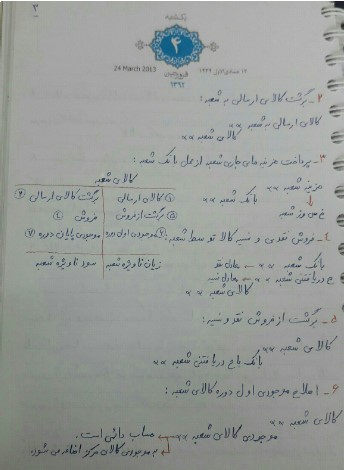 ۳
یکشنبه
۴
24 March 2013
۱۲ جمادی الاول ۱۴۳۴
فروردین
۱۳۹۲
۲- برگشت کالای ارسالی به شعبه:
کالای ارسالی به شعبه ××
کالای شعبه ××
۳- پرداخت هزینه های جاری شعبه از محل بانک شعبه:
هزینه شعبه ××
بانک شعبه ××
خ س و ز شعبه
کالای شعبه
① کالای ارسالی
برگشت کالای ارسالی ④
⑤ برگشت از فروش
فروش ⑥
موجودی اول دوره
موجودی پایان دوره ⑦
زیان ناویژه شعبه
سود ناویژه شعبه
۴- فروش نقدی و نسیه کالا توسط شعبه:
بانک شعبه ×× ← معادل نقد
ح دریافتنی شعبه ×× ← معادل نسیه
کالای شعبه ××
۵- برگشت از فروش نقد و نسیه:
کالای شعبه ××
بانک یا ح دریافتنی شعبه ××
۶- اصلاح موجودی اول دوره کالای شعبه:
کالای شعبه ××
موجودی کالای شعبه ×× ← حساب دائمی است.
به موجودی کالای مرکز اضافه می شود